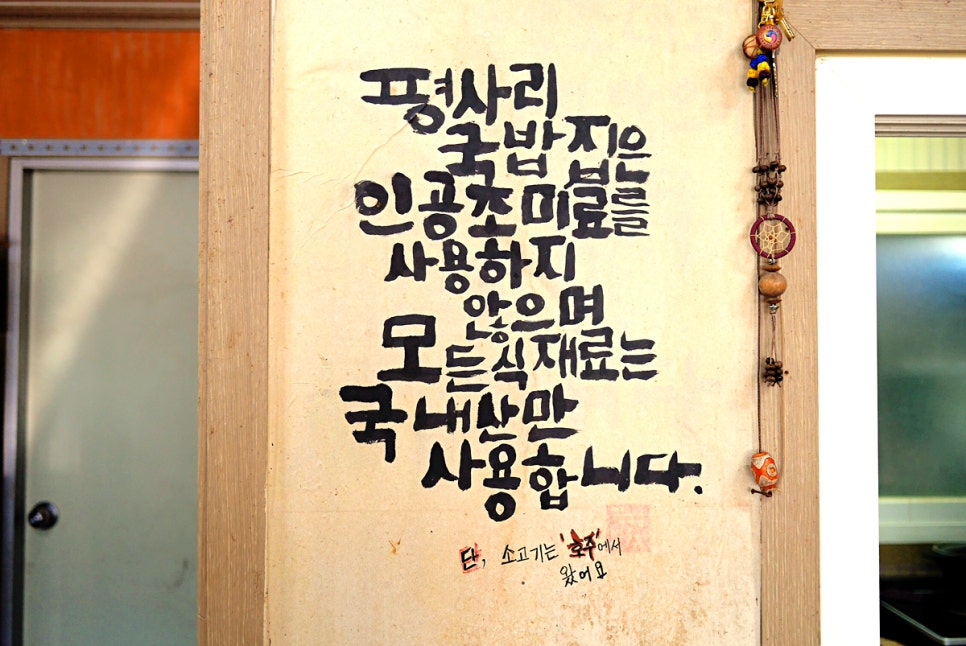 평사리
국밥집은
인공초미료를
사용하지
않으며
모든식재료는
국내산만
사용합니다.
단, 소고기는 '호주'에서
왔어요